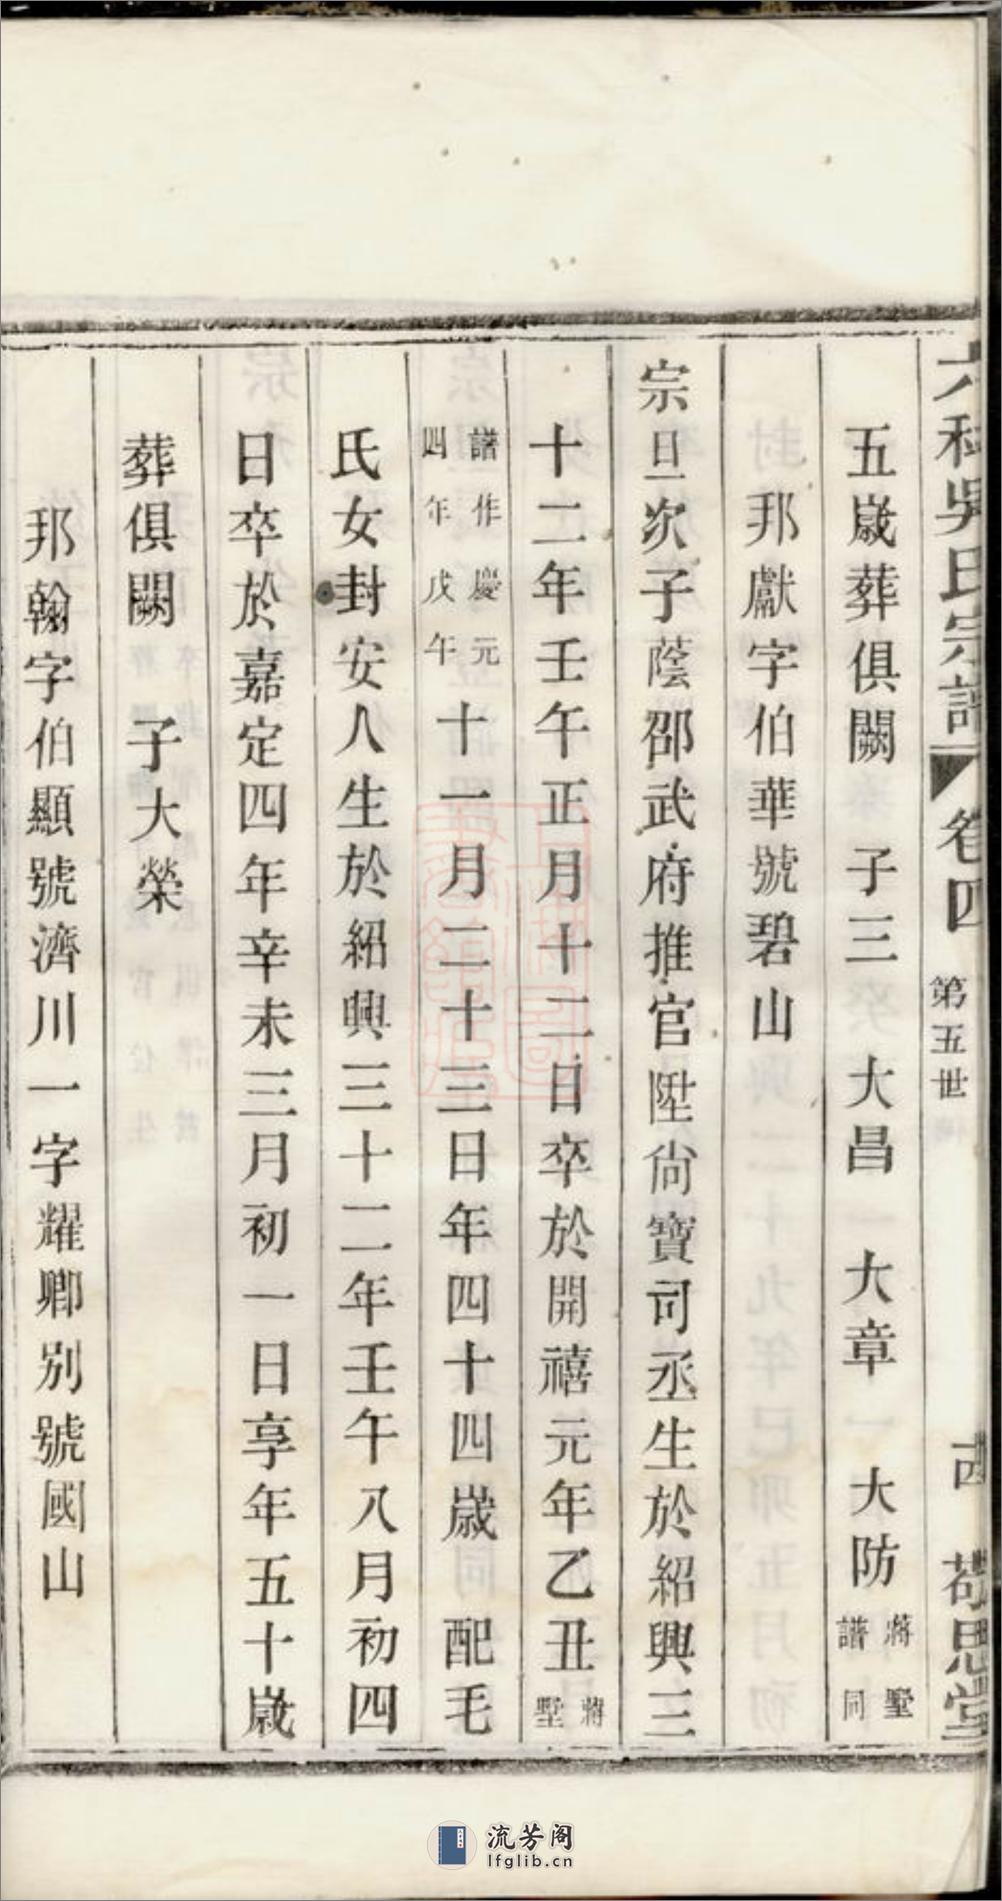 六科吳氏宗譜 卷四 第五世 敬思堂
五歲葬俱闕 子三 大昌 大章 大防 蔣墅譜同
邦獻字伯華號碧山
宗旦次子蔭邵武府推官陞尙寶司丞生於紹興三
十二年壬午正月十二日卒於開禧元年乙丑蔣墅
譜作慶元四年戊午十一月二十三日年四十四歲 配毛
氏女封安人生於紹興三十二年壬午八月初四
日卒於嘉定四年辛未三月初一日享年五十歲
葬俱闕 子大榮
邦翰字伯顯號濟川一字耀卿別號國山
流芳阁
lfglib.cn